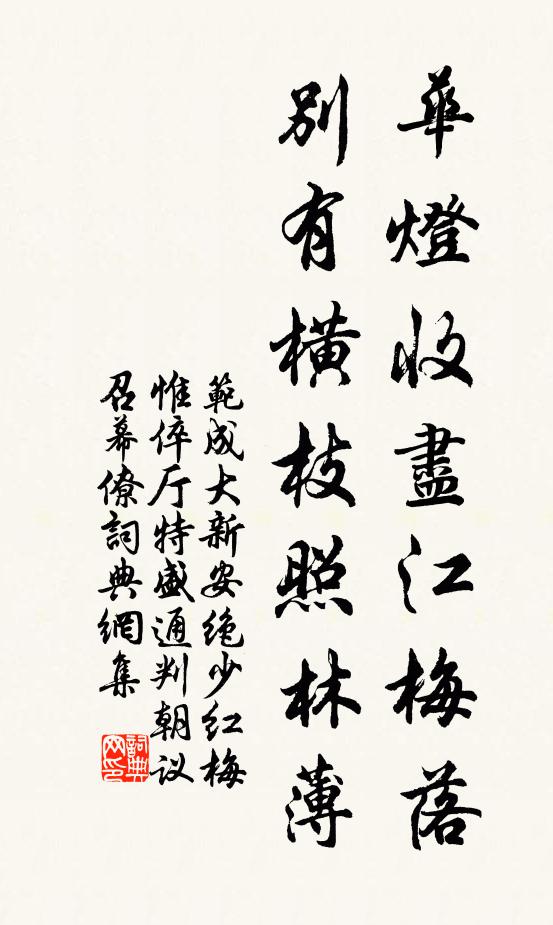 華燈收盡江梅落
別有橫枝照林薄
範成大新安絶少红梅
惟倅厅特盛通判朝议
召幕僚詞典網集
詞典网印